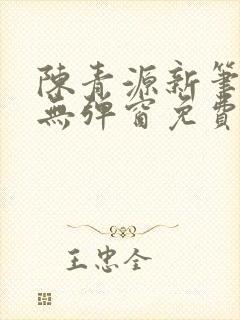 陳青源新筆
無彈窗免費
王忠全